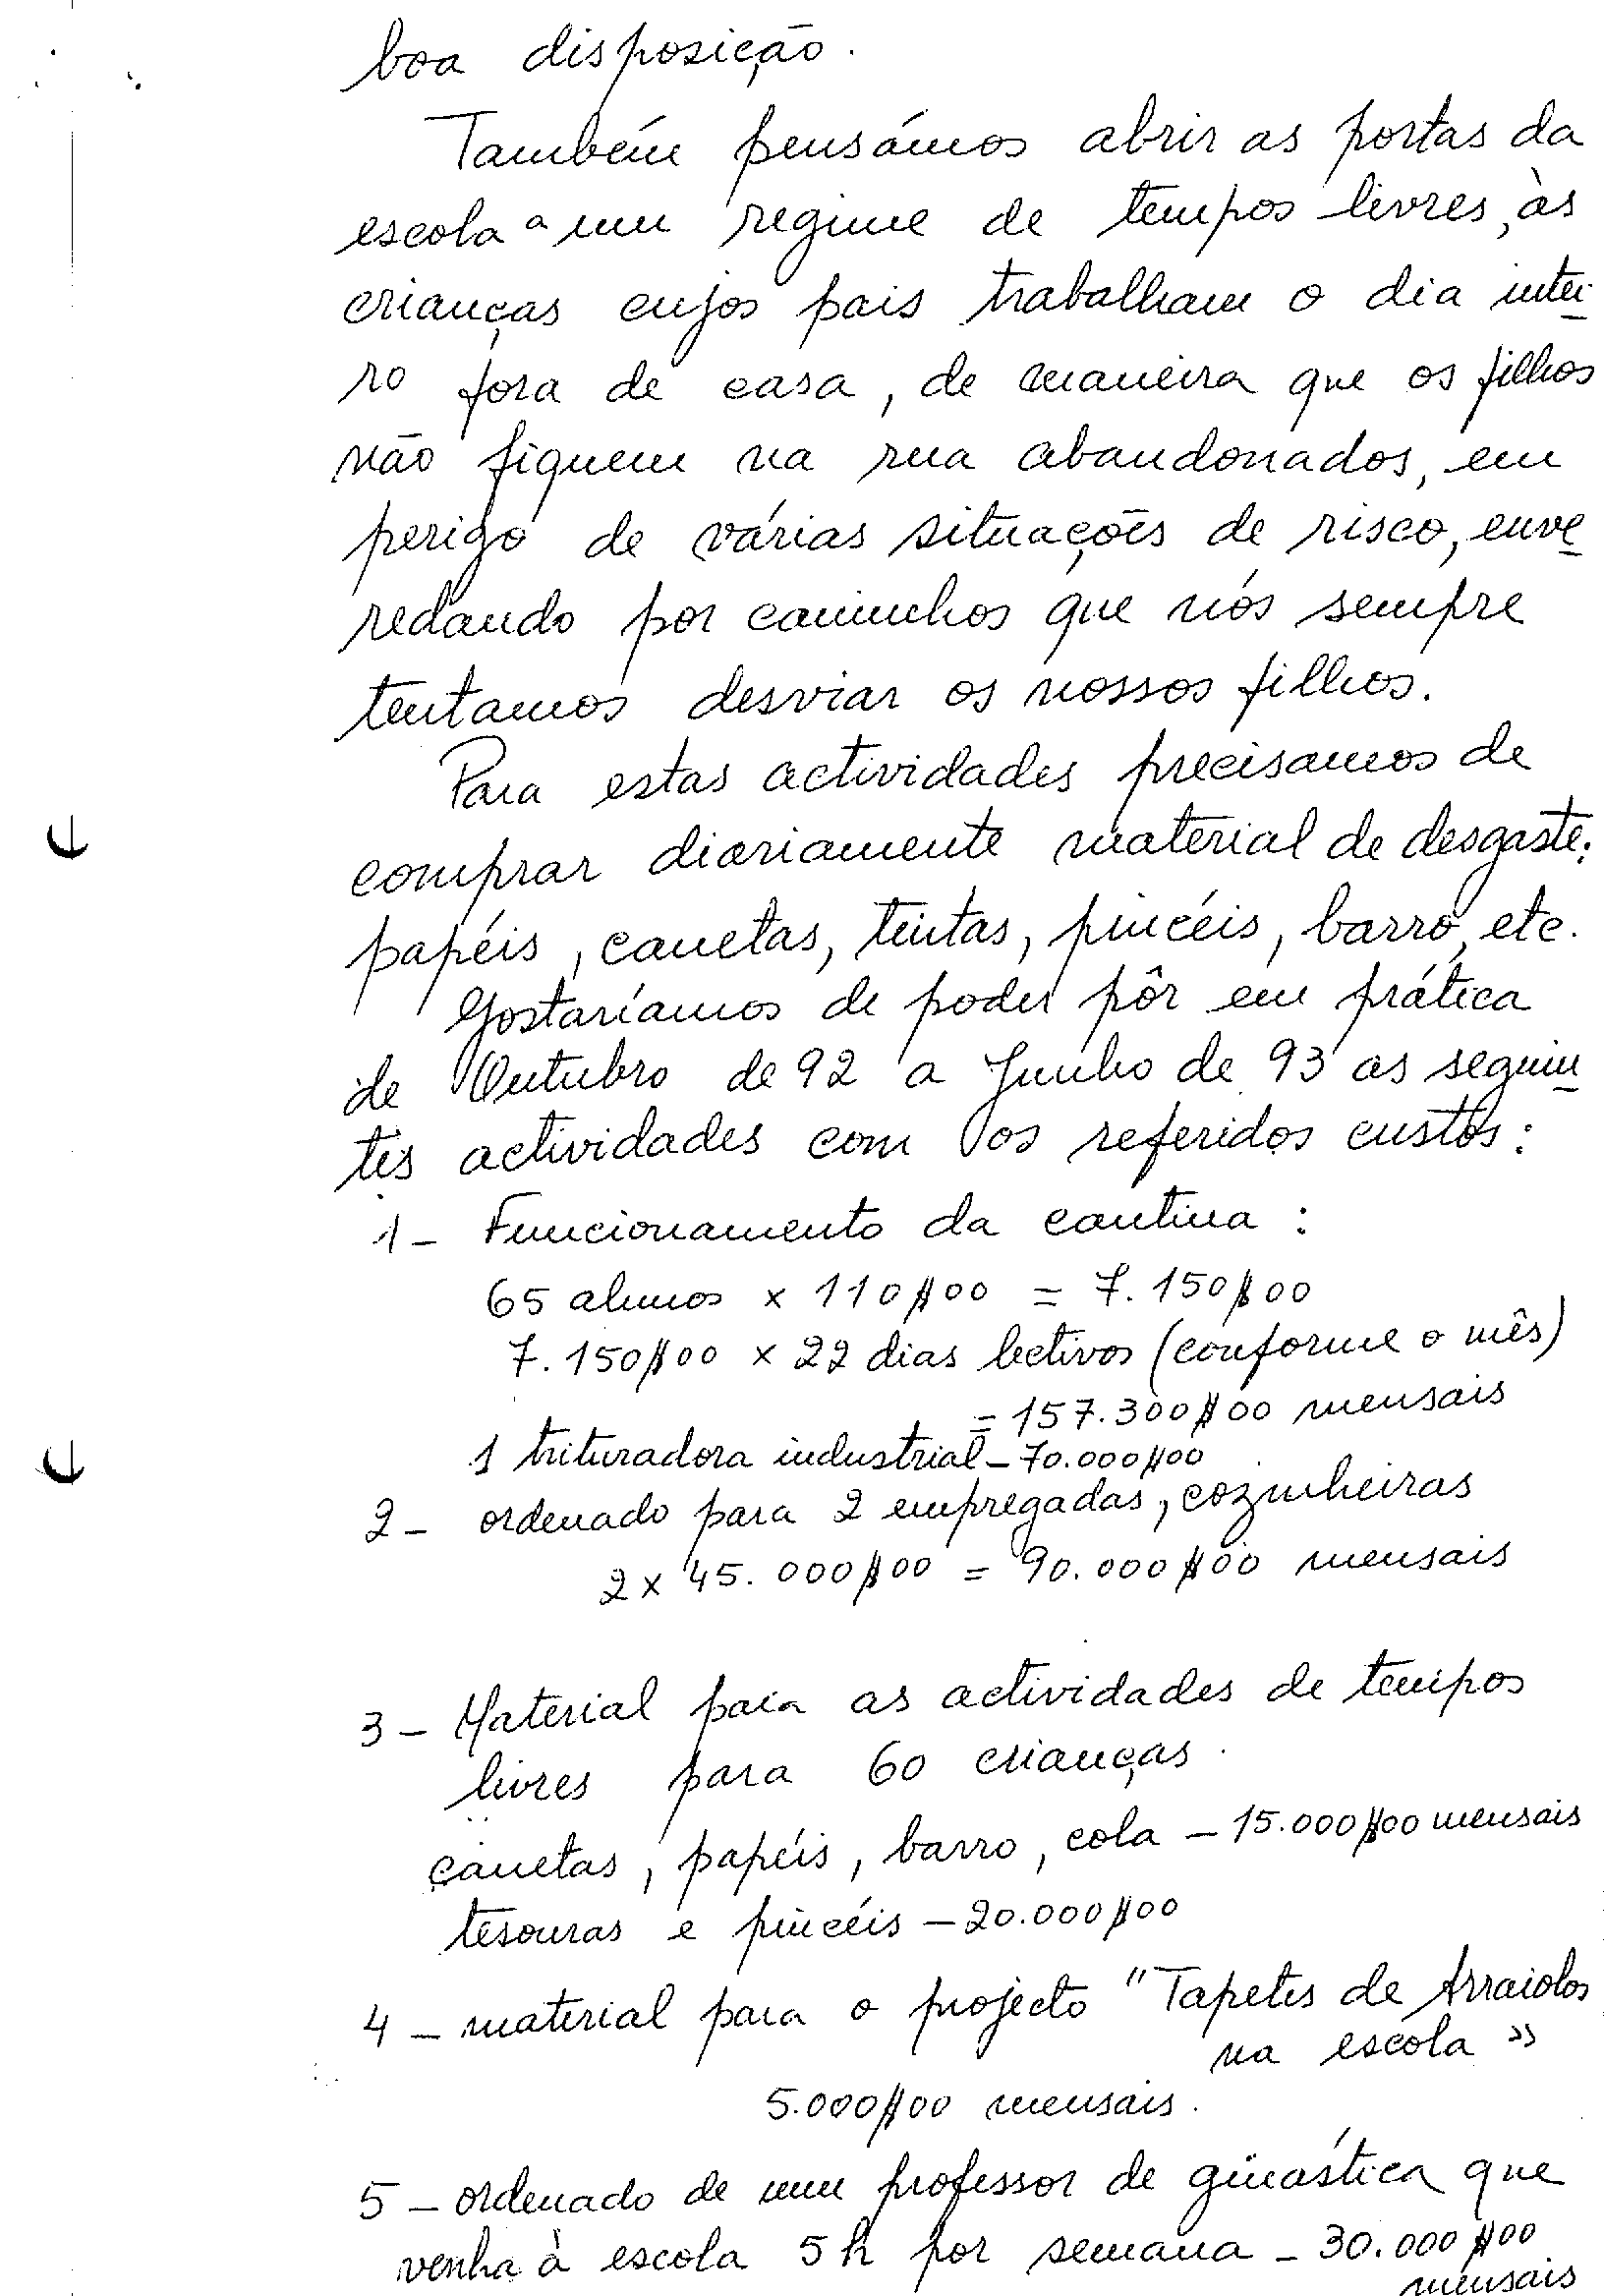 boa disposição.
Também pensámos abrir as portas da
escola a um regime de tempos livres, às
crianças cujos pais trabalham o dia intei-
ro fora de casa, de maneira que os filhos
não fiquem na rua abandonados, em
perigo de várias situações de risco, enve-
redando por caminhos que nós sempre
tentamos desviar os nossos filhos.
Para estas actividades precisamos de
comprar diariamente material de desgaste:
papéis, canetas, tintas, pincéis, barro, etc.
Gostaríamos de poder pôr em prática
de Outubro de 92 a Junho de 93 as seguin-
tes actividades com os referidos custos:
1- Funcionamento da cantina:
65 alunos x 110$00 = 7.150$00
7.150$00 x 22 dias lectivos (conforme o mês)
= 157.300$00 mensais
1 trituradora industrial - 70.000$00
2- ordenado para 2 empregadas, cozinheiras
2 x 45.000$00 = 90.000$00 mensais
3- Material para as actividades de tempos
livres para 60 crianças.
canetas, papéis, barro, cola - 15.000$00 mensais
tesouras e pincéis - 20.000$00
4- material para o projecto "Tapetes de Arraiolos
na escola"
5.000$00 mensais.
5- ordenado de um professor de ginástica que
venha à escola 5h por semana - 30.000$00
mensais